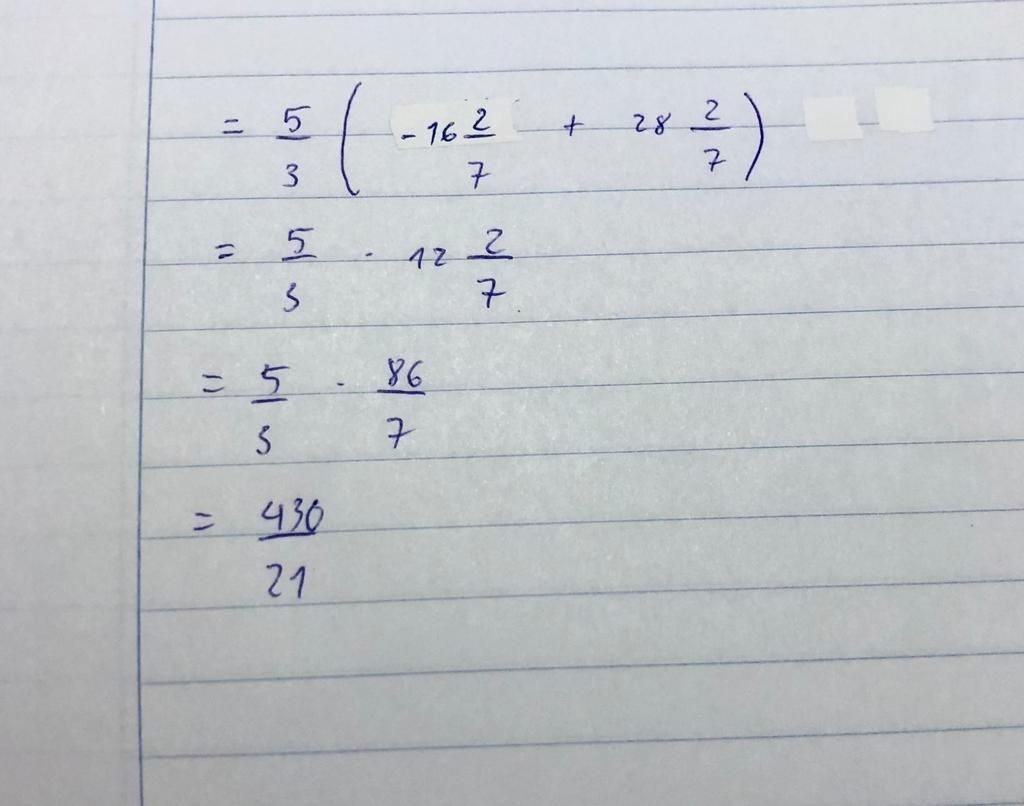 = 5/3 ( -16 2/7 + 28 2/7 )
= 5/3 · 12 2/7
= 5/3 · 86/7
= 430/21